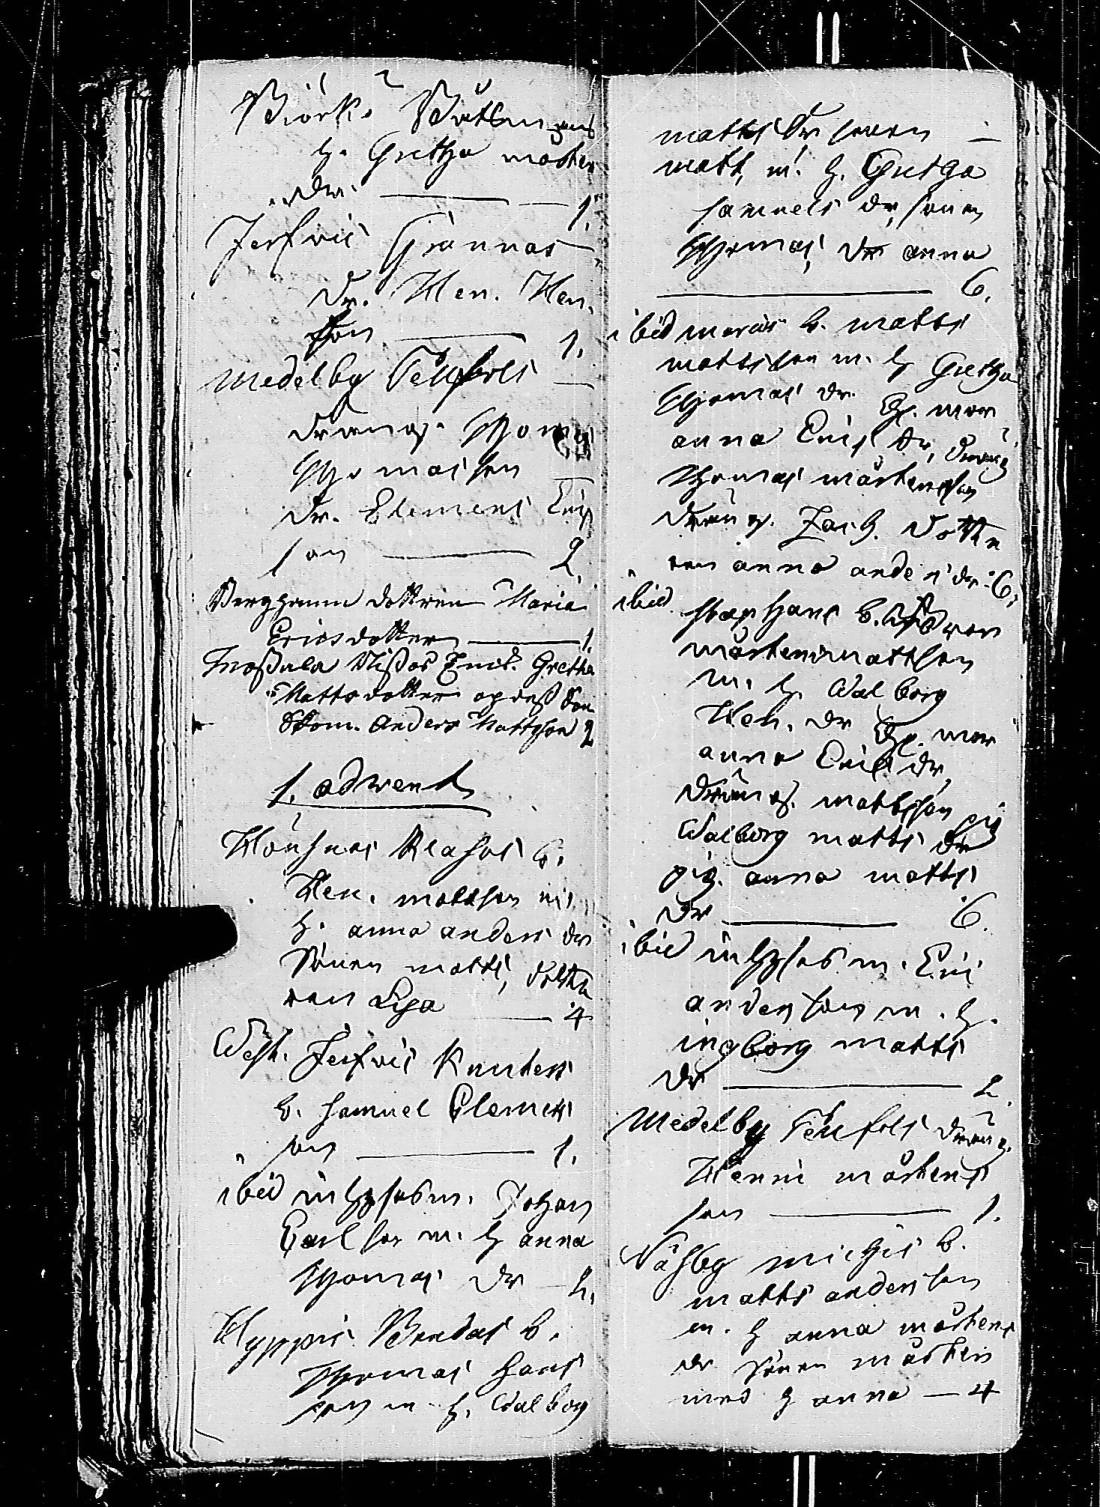 Biörk: Båtsmans
h. Gretha mårtens
dr. 1.
Jerfvis Grannas
dr. Hen. Hen.
son 1.
Medelby
dräng. Thomas
Thomasson
dr. Clemens Eric
son 2
Berghamn dottren Maria
Ericsdotter 1
Nissas Enck. Gretha
Mattsdotter
Anders Mattsson 2
1. advent
Klahas b.
Hen. mattson m.
h. anna anders dr
sönen matts, dottr
ren Lisa 4
West. Jerfvis Knuters
b. samuel Clemets
son 1.
ibid inhyses m. Johan
Carlson m. h anna
Thomas dr 2.
Hyppis Bendas b.
Thomas hans
son m h. Walborg
matts dr sonen
matts m. h. Gretha
samuels dr, sonen
Thomas, dr anna
6.
ibid b. matts
mattsson m. h Gretha
Thomas dr. mor
anna Erics dr, dräng
Thomas mårtensson
dräng. Zach. dottr
ren anna anders dr. 6.
ibid staphans b.
mårten mattson
m. h. Walborg
Hen. dr mor
anna Erics dr,
dräng. mattsson pig
Walborg matts dr
pig. anna matts
dr 6.
ibid inhyses m. Eric
anderson m. h.
ingborg matts
dr 2.
Medelby dräng.
Henric mårtens
son 1.
Nåhsby michis b.
matts anderson
m. h anna mårtens
dr sönen mårten
med h anna 4